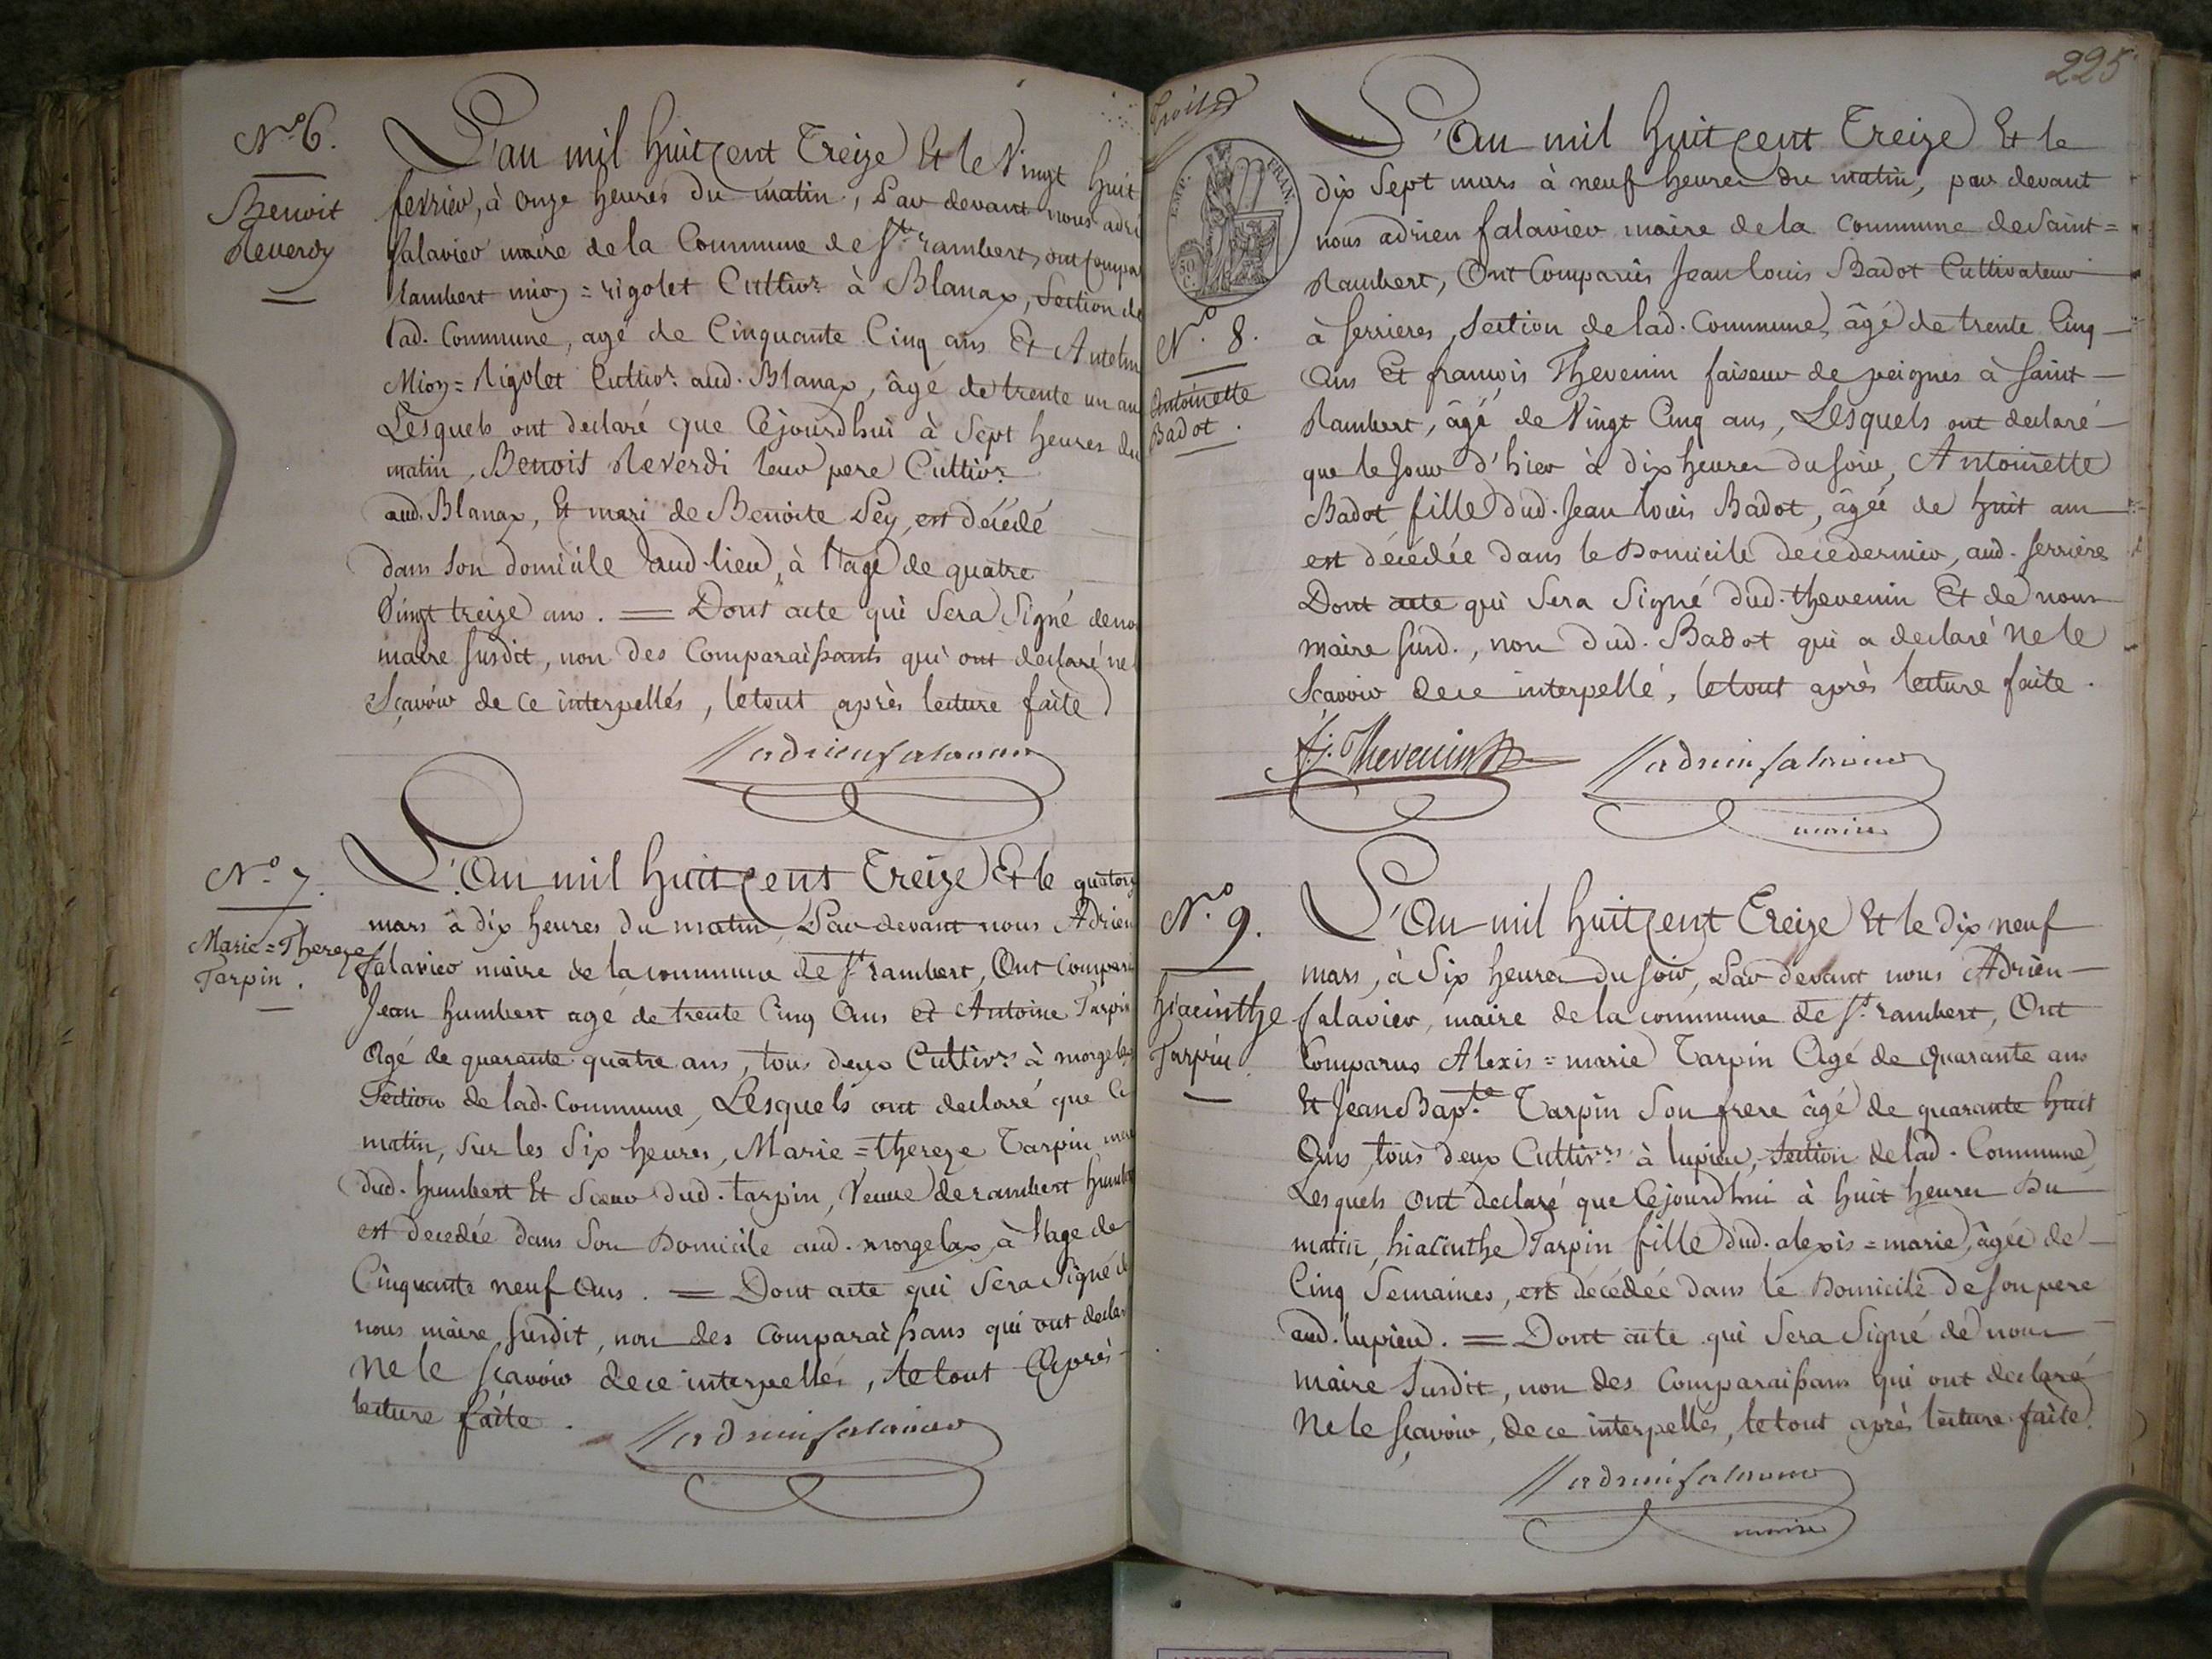 N.º 6.
Benoit
Reverdy
L'an mil huit cent treize Et le Vingt huit
fevrier, à onze heures du matin, Par devant nous adri
falavier maire de la Commune de St. rambert, ont compar
rambert mioz = rigolet Cultivr. à Blanax, Section de
lad. Commune, agé de Cinquante Cinq ans Et Antelm
Mioz = Rigolet Cultivr. aud. Blanax, âgé de trente un an
Lesquels ont declaré que Cejourdhui à Sept heures du
matin, Benoit Reverdi leur pere Cultivr.
aud. Blanax, Et mari de Benoite Pey, est décédé
dans son domicile aud. lieu, à l'age de quatre
Vingt treize ans. = Dont acte qui Sera Signé de no
maire susdit, non des Comparaissants qui ont declaré ne l
Sçavoir de ce interpellés, le tout après lecture faite
adrien falavier
N.º 7.
Marie = Thereze
Tarpin.
L'An mil huit cent treize Et le quatorz
mars à dix heures du matin, Par devant nous Adrien
falavier maire de la commune de St. rambert, Ont compar
Jean humbert agé de trente Cinq Ans et Antoine Tarpin
Agé de quarante quatre ans, tous deux Cultivrs. à morgelax
Section de lad. Commune, Lesquels ont declaré que Ce
matin, sur les Six heures, Marie = thereze Tarpin
dud. humbert Et Sœur dud. tarpin, Veuve de rambert humb
est decedée dans Son Domicile aud. morgelax, à l'age de
Cinquante neuf Ans. = Dont acte qui Sera Signé d
nous maire susdit, non des Comparaissans qui ont declar
Ne le sçavoir de ce interpellés, le tout Après
lecture faite.
adrien falavier
225
EMP. FRAN.
N.º 8.
Antoinette
Badot.
L'An mil huit cent Treize Et le
dix Sept mars à neuf heures du matin, par devant
nous adrien falavier maire de la Commune de Saint =
Rambert, Ont Comparûs Jean louis Badot Cultivateur
à serrieres, Section de lad. Commune, âgé de trente Cinq
Ans Et françois Thevenin faiseur de peignes à Saint
Rambert, âgé de Vingt Cinq ans, Lesquels ont declaré
que le Jour d'hier à dix heures du soir, Antoinette
Badot fille dud. Jean louis Badot, âgée de huit ans
est décédée dans le Domicile de ce dernier, aud. serrieres
Dont acte qui Sera Signé dud. thevenin Et de nous
maire susd., non dud. Badot qui a declaré Ne le
Sçavoir de ce interpellé, le tout après lecture faite.
f.s. Thevenin adrien falavier
maire
N.º 9.
hiacinthe
Tarpin.
L'An mil huit cent Treize Et le dix neuf
mars, à Six heures du soir, Par devant nous Adrien
falavier, maire de la commune de St. rambert, Ont
Comparus Alexis = marie Tarpin Agé de quarante ans
Et Jean Bapte. Tarpin Son frere âgé de quarante huit
Ans, tous deux Cultivrs. à lupieu, Section de lad. Commune,
Lesquels ont declaré que Cejourdhui à huit heures Du
matin, hiacinthe Tarpin fille dud. alexis = marie, âgée de
Cinq Semaines, est décédée dans le Domicile de son pere
aud. lupieu. = Dont acte qui Sera Signé de nous
maire Susdit, non des Comparaissans qui ont declaré
Ne le sçavoir, de ce interpellés, le tout après lecture faite.
adrien falavier
maire